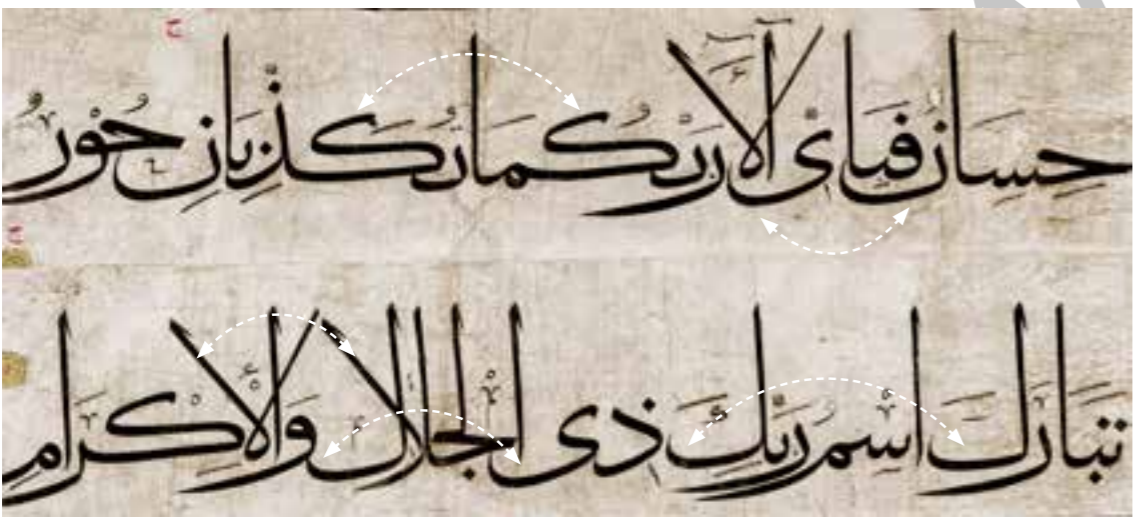 حسان فباى آلاء ربكما تكذبان حور
تبارك اسم ربك ذى الجلال والاكرام